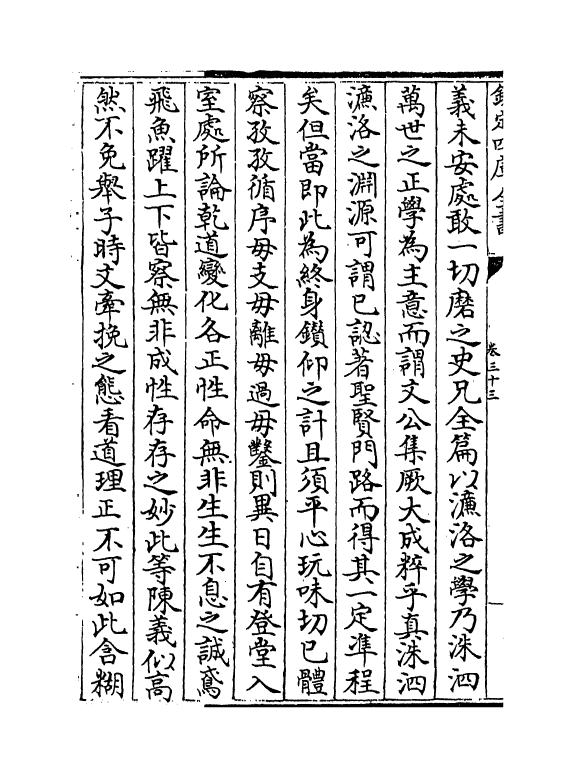 欽定四庫全書
卷三十三
義未安處敢一切磨之史兄全篇以濂洛之學乃洙泗
萬世之正學為主意而謂文公集厥大成粹乎真洙泗
濂洛之淵源可謂已認著聖賢門路而得其一定準程
矣但當即此為終身鑚仰之計且須平心玩味切已體
察孜孜循序毋支毋離毋過毋鑿則異日自有登堂入
室處所論乾道變化各正性命無非生生不息之誠鳶
飛魚躍上下皆察無非成性存存之妙此等陳義似高
然不免舉子時文牽挽之態看道理正不可如此含糊